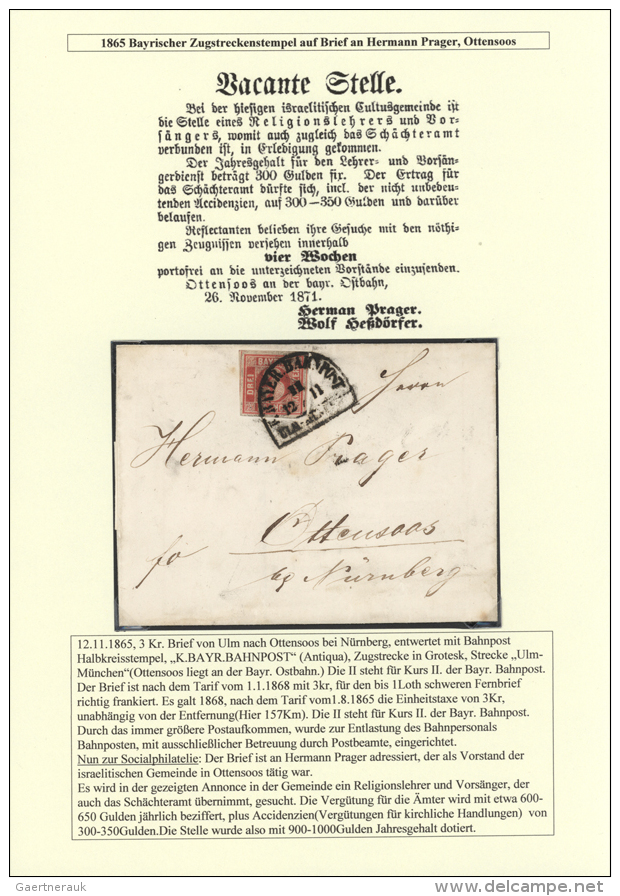 1865 Bayrischer Zugstreckenstempel auf Brief an Hermann Prager, Ottensoos
Vacante Stelle.
Bei der hiesigen israelitischen Cultusgemeinde ist
die Stelle eines Religionslehrers und Vor-
sängers, womit auch zugleich das Schächteramt
verbunden ist, in Erledigung gekommen.
Der Jahresgehalt für den Lehrer- und Vorsän-
gerdienst beträgt 300 Gulden fix. Der Ertrag für
das Schächteramt dürfte sich, incl. der nicht unbedeu-
tenden Accidenzien, auf 300—350 Gulden und darüber
belaufen.
Reflectanten belieben ihre Gesuche mit den nöthi-
gen Zeugnissen versehen innerhalb
vier Wochen
portofrei an die unterzeichneten Vorstände einzusenden.
Ottensoos an der bayr. Ostbahn,
26. November 1871.
Herman Prager.
Wolf Heßdörfer.
DREI
BAYER
K.BAYER.BAHNPOST
II
12 11
Herrn
Hermann Prager
Ottensoos
fo
bg Nürnberg
12.11.1865, 3 Kr. Brief von Ulm nach Ottensoos bei Nürnberg, entwertet mit Bahnpost
Halbkreisstempel, „K.BAYR.BAHNPOST“ (Antiqua), Zugstrecke in Grotesk, Strecke „Ulm-
München“(Ottensoos liegt an der Bayr. Ostbahn.) Die II steht für Kurs II. der Bayr. Bahnpost.
Der Brief ist nach dem Tarif vom 1.1.1868 mit 3kr, für den bis 1Loth schweren Fernbrief
richtig frankiert. Es galt 1868, nach dem Tarif vom1.8.1865 die Einheitstaxe von 3Kr,
unabhängig von der Entfernung(Hier 157Km). Die II steht für Kurs II. der Bayr. Bahnpost.
Durch das immer größere Postaufkommen, wurde zur Entlastung des Bahnpersonals
Bahnposten, mit ausschließlicher Betreuung durch Postbeamte, eingerichtet.
Nun zur Socialphilatelie: Der Brief ist an Hermann Prager adressiert, der als Vorstand der
israelitischen Gemeinde in Ottensoos tätig war.
Es wird in der gezeigten Annonce in der Gemeinde ein Religionslehrer und Vorsänger, der
auch das Schächteramt übernimmt, gesucht. Die Vergütung für die Ämter wird mit etwa 600-
650 Gulden jährlich beziffert, plus Accidenzien(Vergütungen für kirchliche Handlungen) von
300-350Gulden.Die Stelle wurde also mit 900-1000Gulden Jahresgehalt dotiert.
Gaertnerauk
www.delcampe.net